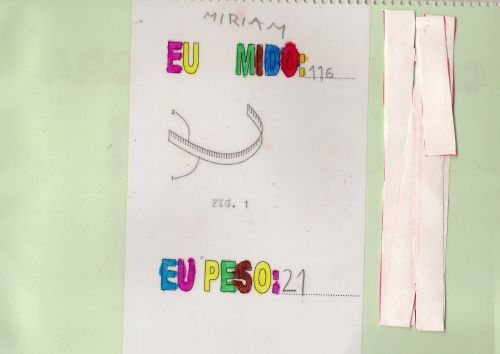 MIRIAM
EU MIDO: 116
2
1
FIG. 1
EU PESO: 21